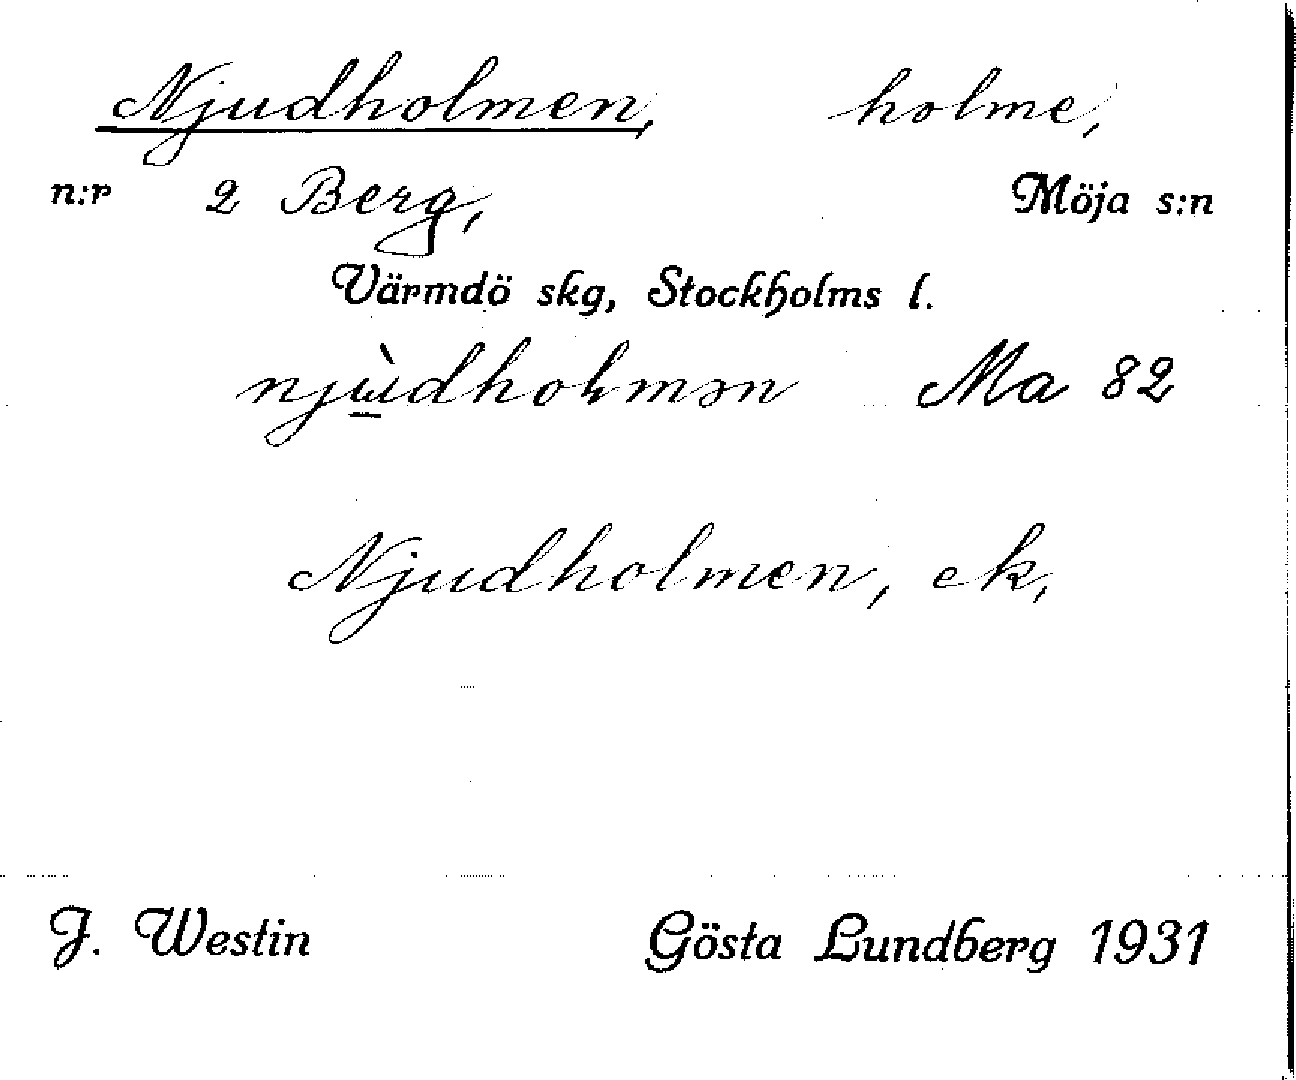 Njudholmen, holme,
n:r 2 Berg, Möja s:n
Värmdö skg, Stockholms l.
njɯ̱̀dhoɫmən Ma 82
Njudholmen, ek,
J. Westin Gösta Lundberg 1931